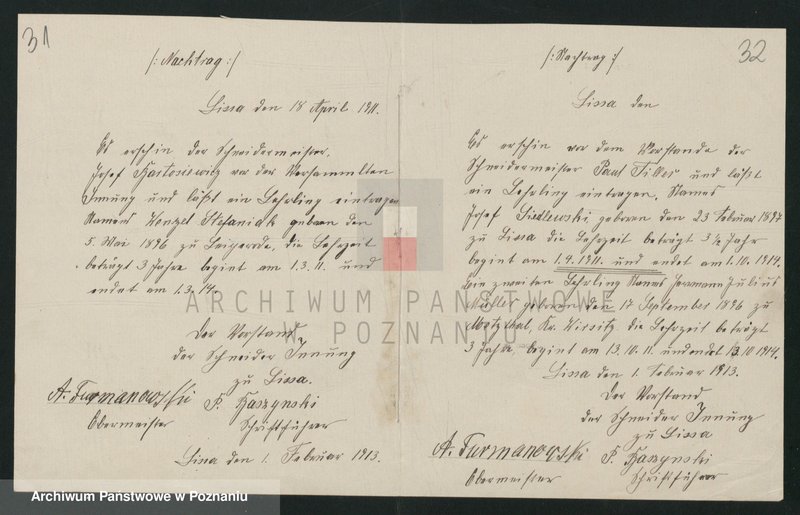 31
/: Nachtrag :/
Lissa den 18 April 1911.
Es erschin der Schneidermeister.
Josef Bartosiewicz vor der Versammelten
Innung und läßt ein Lehrling eintragen
Namens Wenzel Stefaniak geboren den
5. Mai 1896 zu die Lehrzeit
beträgt 3 Jahre begint am 1.3.11. und
endet am 1.3.14.
Der Vorstand
der Schneider Innung
zu Lissa.
A. Furmanowski P. Kaszynski
Obermeister Schriftführer
Lissa den 1. Februar 1913.
32
/: Nachtrag :/
Lissa den
Es erschin vor dem Vorstande der
Schneidermeister Paul Tiller und läßt
ein Lehrling eintragen. Namens
Josef Siedlewski geboren den 23 Februar 1897
zu Lissa die Lehrzeit beträgt 3 1/2 Jahr
begint am 1.4.1911. und endet am 1.10.1914.
Lehrling Namens Hermann Julius
Müller geboren den 17 September 1896 zu
Kr. Wirsitz die Lehrzeit beträgt
3 Jahre, begint am 13.10.11. und endet 13.10 1914.
Lissa den 1. Februar 1913.
Der Vorstand
der Schneider Innung
zu Lissa
A. Furmanowski P. Kaszynski
Obermeister Schriftführer
ARCHIWUM PAŃSTWOWE
W POZNANIU
Archiwum Państwowe w Poznaniu